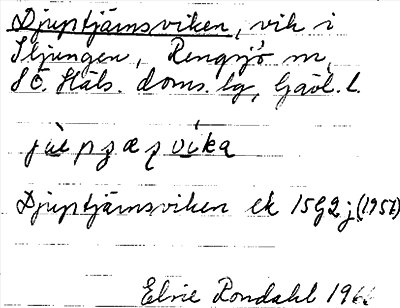 Djuptjärnsviken, vik i
Sljungen, Rengsjö sn,
SÖ. Häls. doms. lg, Gävl. l.
Djuptjärnsviken ek 15G2j (1957)
Elvie Rondahl 1966